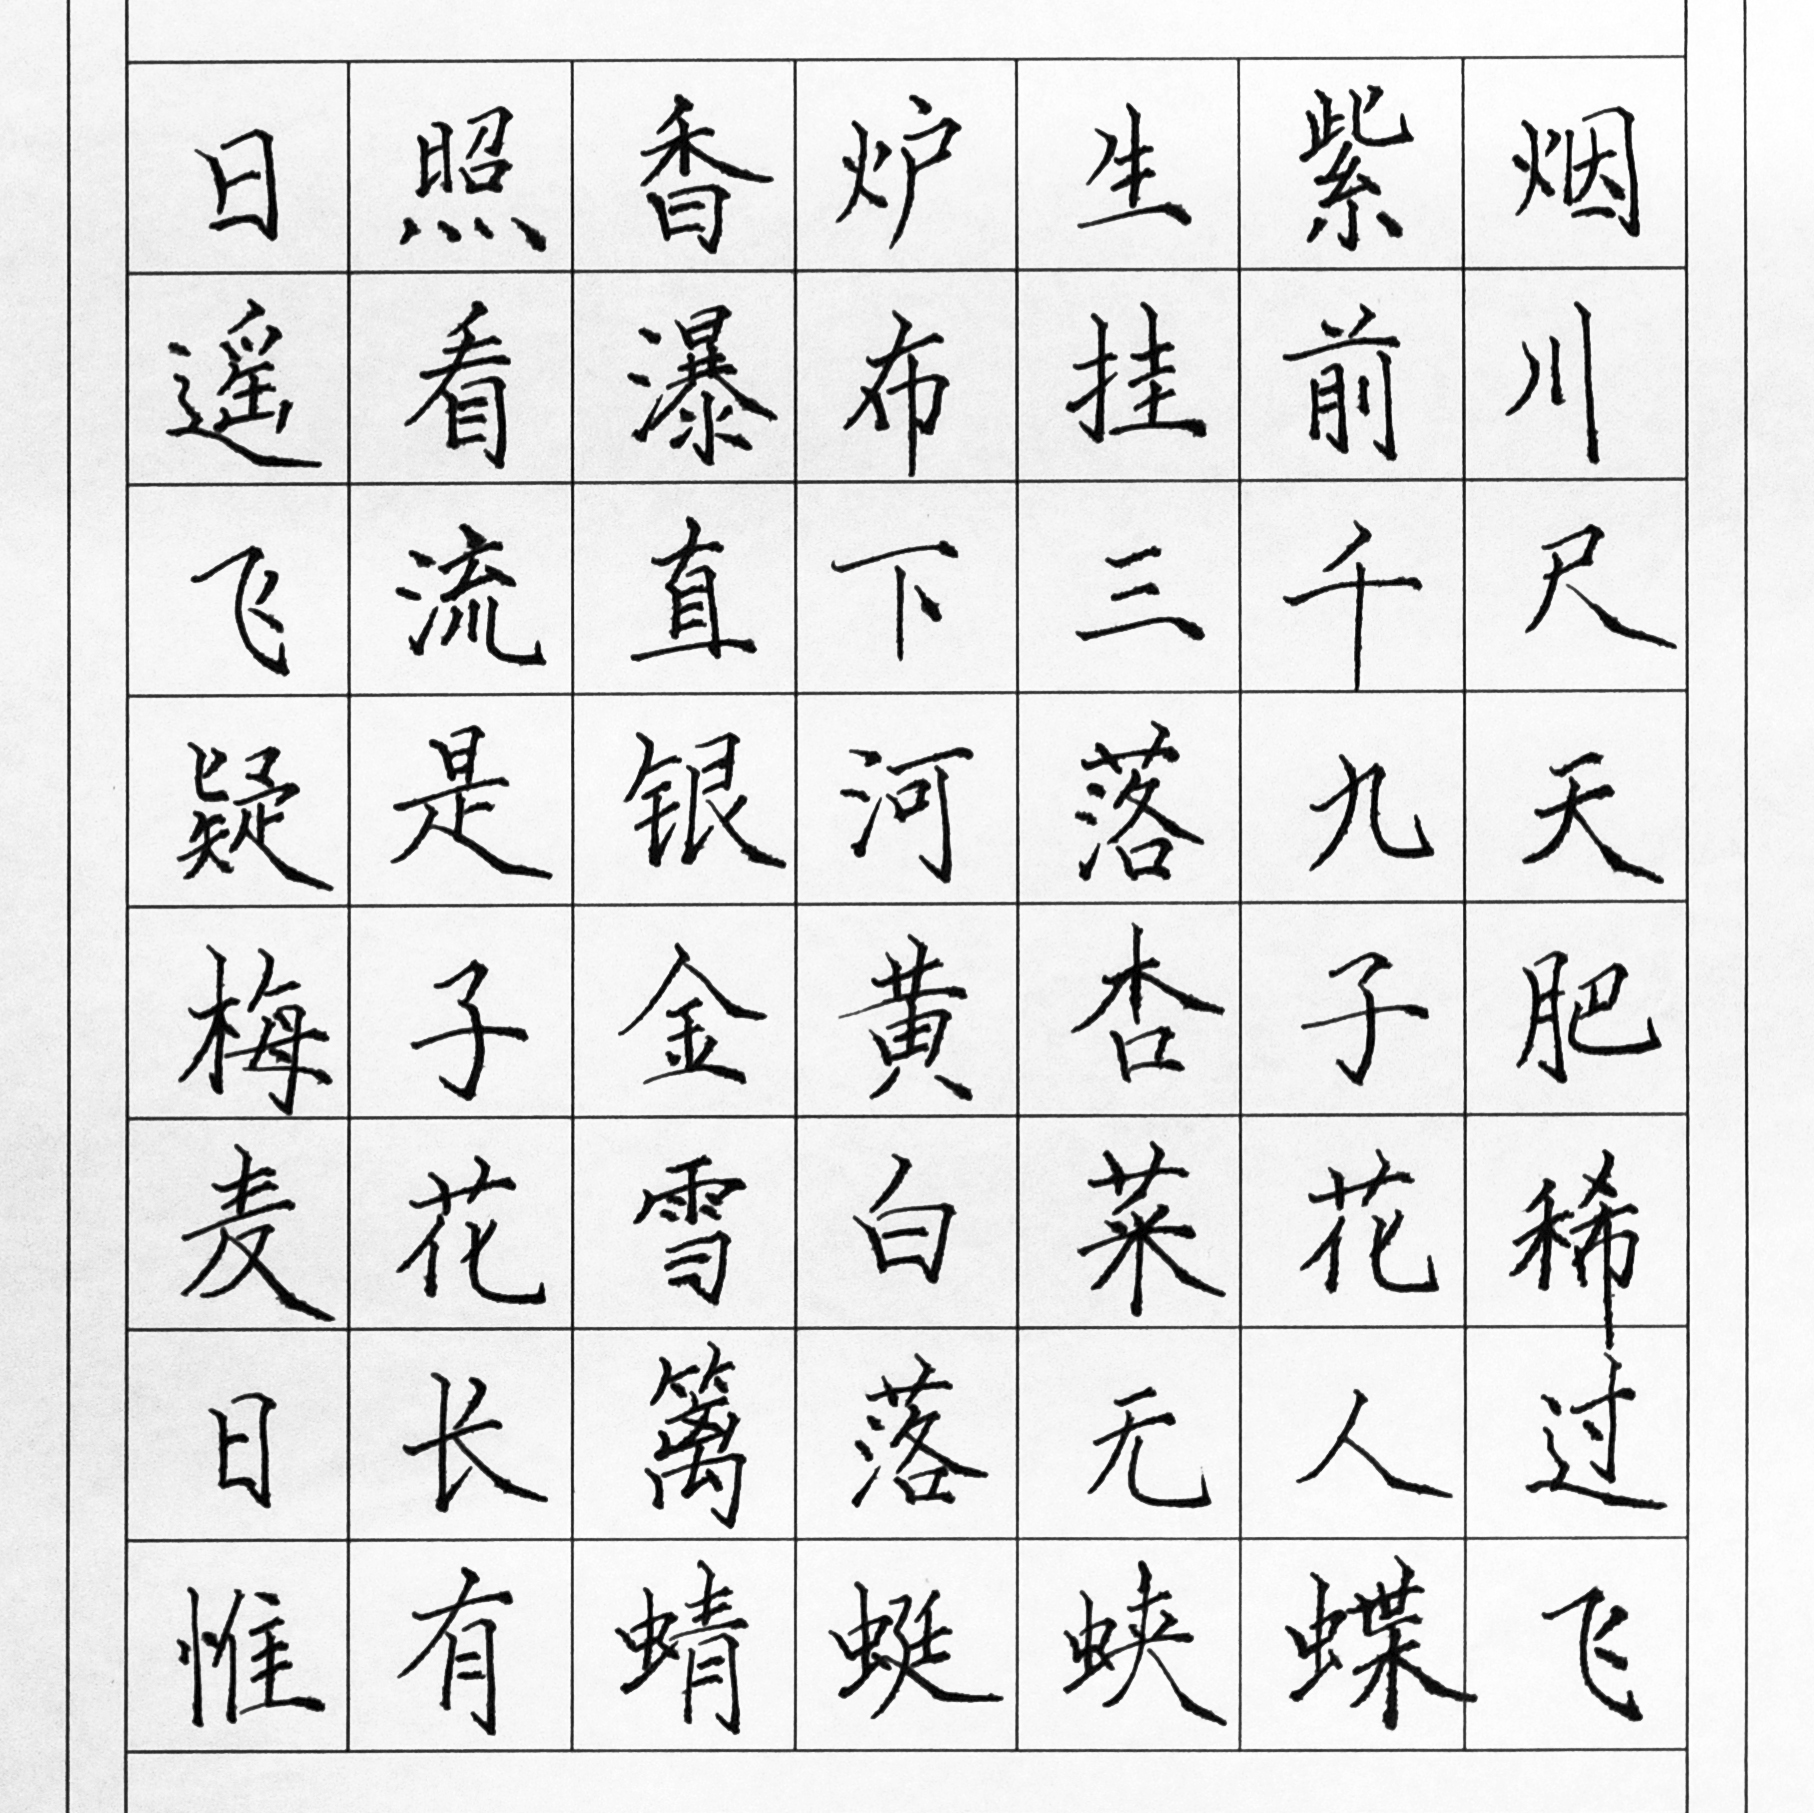 日照香炉生紫烟
遥看瀑布挂前川
飞流直下三千尺
疑是银河落九天
梅子金黄杏子肥
麦花雪白菜花稀
日长篱落无人过
惟有蜻蜓蛱蝶飞